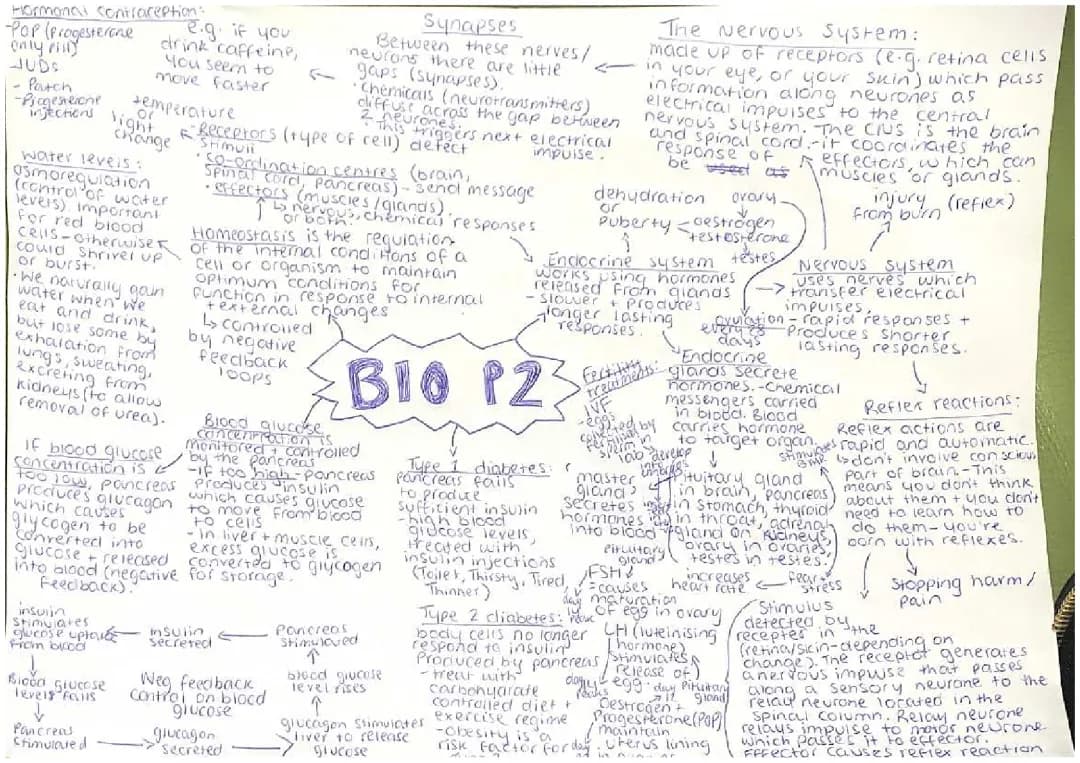 Hormonal contraception:
-POP (progesterone
only pill)
IUDs
- Patch
- Progesterone
injections
e.g. if you
drink caffeine,
you seem to
move faster
Synapses
Between these nerves/
neurons there are little
gaps (synapses).
• chemicals (neurotransmitters)
diffuse across the gap between
2 neurones.
This triggers next electrical
impulse.
The Nervous System:
made up of receptors (e.g. retina cells
in your eye, or your skin) which pass
information along neurones as
electrical impulses to the central
nervous system. The CNS is the brain
and spinal cord.-it coordinates the
response of effectors, which can
be used as muscles or glands.
temperature
or
light
change
• Receptors (type of cell) detect
stimuli
• Co-ordination centres (brain,
spinal cord, pancreas) - send message
• effectors (muscles/glands).
↳ nervous, chemical responses
or both.
Homeostasis is the regulation
of the internal conditions of a
cell or organism to maintain
optimum conditions for
function in response to internal
+ external changes
↳ controlled
by negative
feedback
loops
Water levels:
osmoregulation
(control of water
levels) important
for red blood
cells - otherwise
could shrivel up
or burst.
• We naturally gain
water when we
eat and drink,
but lose some by
exhalation from
lungs, sweating,
excreting from
kidneys (to allow
removal of urea).
dehydration
or
puberty
ovary
oestrogen
testosterone
testes
injury (reflex)
from burn
Endocrine system
works using hormones
released from glands
- slower + produces
longer lasting
responses.
ovulation
every 28
days
Nervous system
uses nerves which
transfer electrical
impulses.
- rapid responses +
produces shorter
lasting responses.
BIO P2
Fertility
treatments:
IVF
-eggs
fertilised by
sperm in
lab
develop
into
embryos
Endocrine
glands secrete
hormones. -Chemical
messengers carried
in blood. Blood
carries hormone
to target organ.
Reflex reactions:
Reflex actions are
rapid and automatic.
↳ don't involve conscious
part of brain - This
means you don't think
about them + you don't
need to learn how to
do them - you're
born with reflexes.
Stopping harm/
pain
Blood glucose
concentration is
monitored + controlled
by the pancreas
-if too high - pancreas
produces insulin
which causes glucose
to move from blood
to cells
- in liver + muscle cells,
excess glucose is
converted to glycogen
for storage.
If blood glucose
concentration is
too low, pancreas
produces glucagon
which causes
glycogen to be
converted into
glucose + released
into blood (negative
feedback).
Type 1 diabetes:
pancreas fails
to produce
sufficient insulin
- high blood
glucose levels,
treated with
insulin injections
(Toilet, Thirsty, Tired,
Thinner)
master
gland
secretes
hormones
into blood
Pituitary gland
in brain, pancreas
in stomach, thyroid
in throat, adrenal
gland on kidneys,
ovary in ovaries,
testes in testes.
increases
heart rate
fear
stress
Pituitary
gland
FSH
=causes
maturation
of egg in ovary
LH (luteinising
hormone)
stimulates
release of
egg.
Pituitary
gland
Oestrogen +
Progesterone (POP)
maintain
uterus lining
Type 2 diabetes:
body cells no longer
respond to insulin
Produced by pancreas
- treat with
carbohydrate
controlled diet +
exercise regime
- obesity is a
risk factor for
Stimulus
detected by
receptes in the
(retina/skin-depending on
change). The receptor generates
a nervous impulse that passes
along a sensory neurone to the
relay neurone located in the
spinal column. Relay neurone
relays impulse to motor neurone
which passes it to effector.
Effector causes reflex reaction
insulin
stimulates
glucose uptake
from blood
insulin
secreted
Pancreas
stimulated
Blood glucose
levels falls
Neg feedback
control on blood
glucose
blood glucose
level rises
Pancreas
stimulated
glucagon
secreted
glucagon stimulates
liver to release
glucose